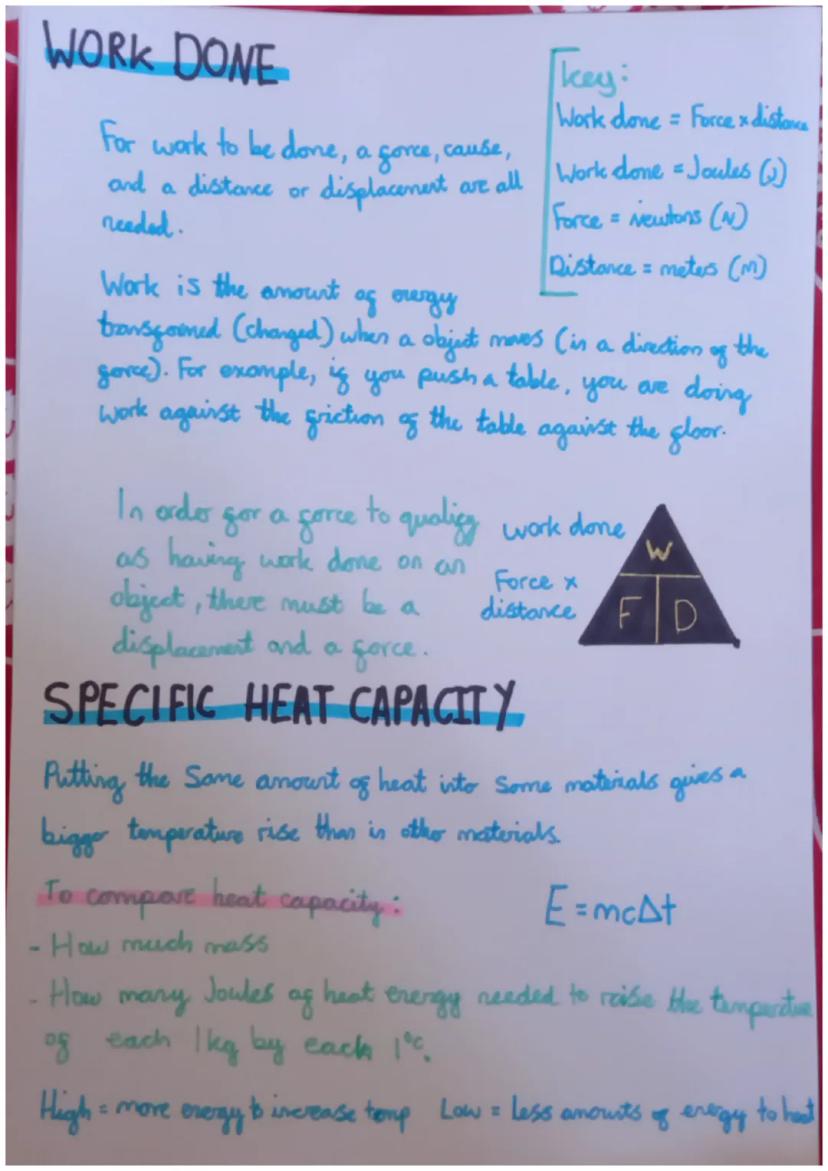 WORK DONE
key:
Work done = Force x distance
Work done = Joules (J)
Force = Newtons (N)
Distance = meters (M)
For work to be done, a force, cause,
and a distance or displacement are all
needed.
Work is the amount of energy
transformed (changed) when a object moves (in a direction of the
force). For example, if you push a table, you are doing
work against the friction of the table against the floor.
In order for a force to qualify
as having work done on an
object, there must be a
displacement and a force.
work done
Force x
distance
W
F D
SPECIFIC HEAT CAPACITY
Putting the Same amount of heat into some materials gives a
bigger temperature rise than in other materials.
To compare heat capacity:
E = mcΔt
- How much mass
- How many Joules of heat energy needed to raise the temperature
of each 1kg by each 1°C.
High = more energy to increase temp Low = Less amounts of energy to heat